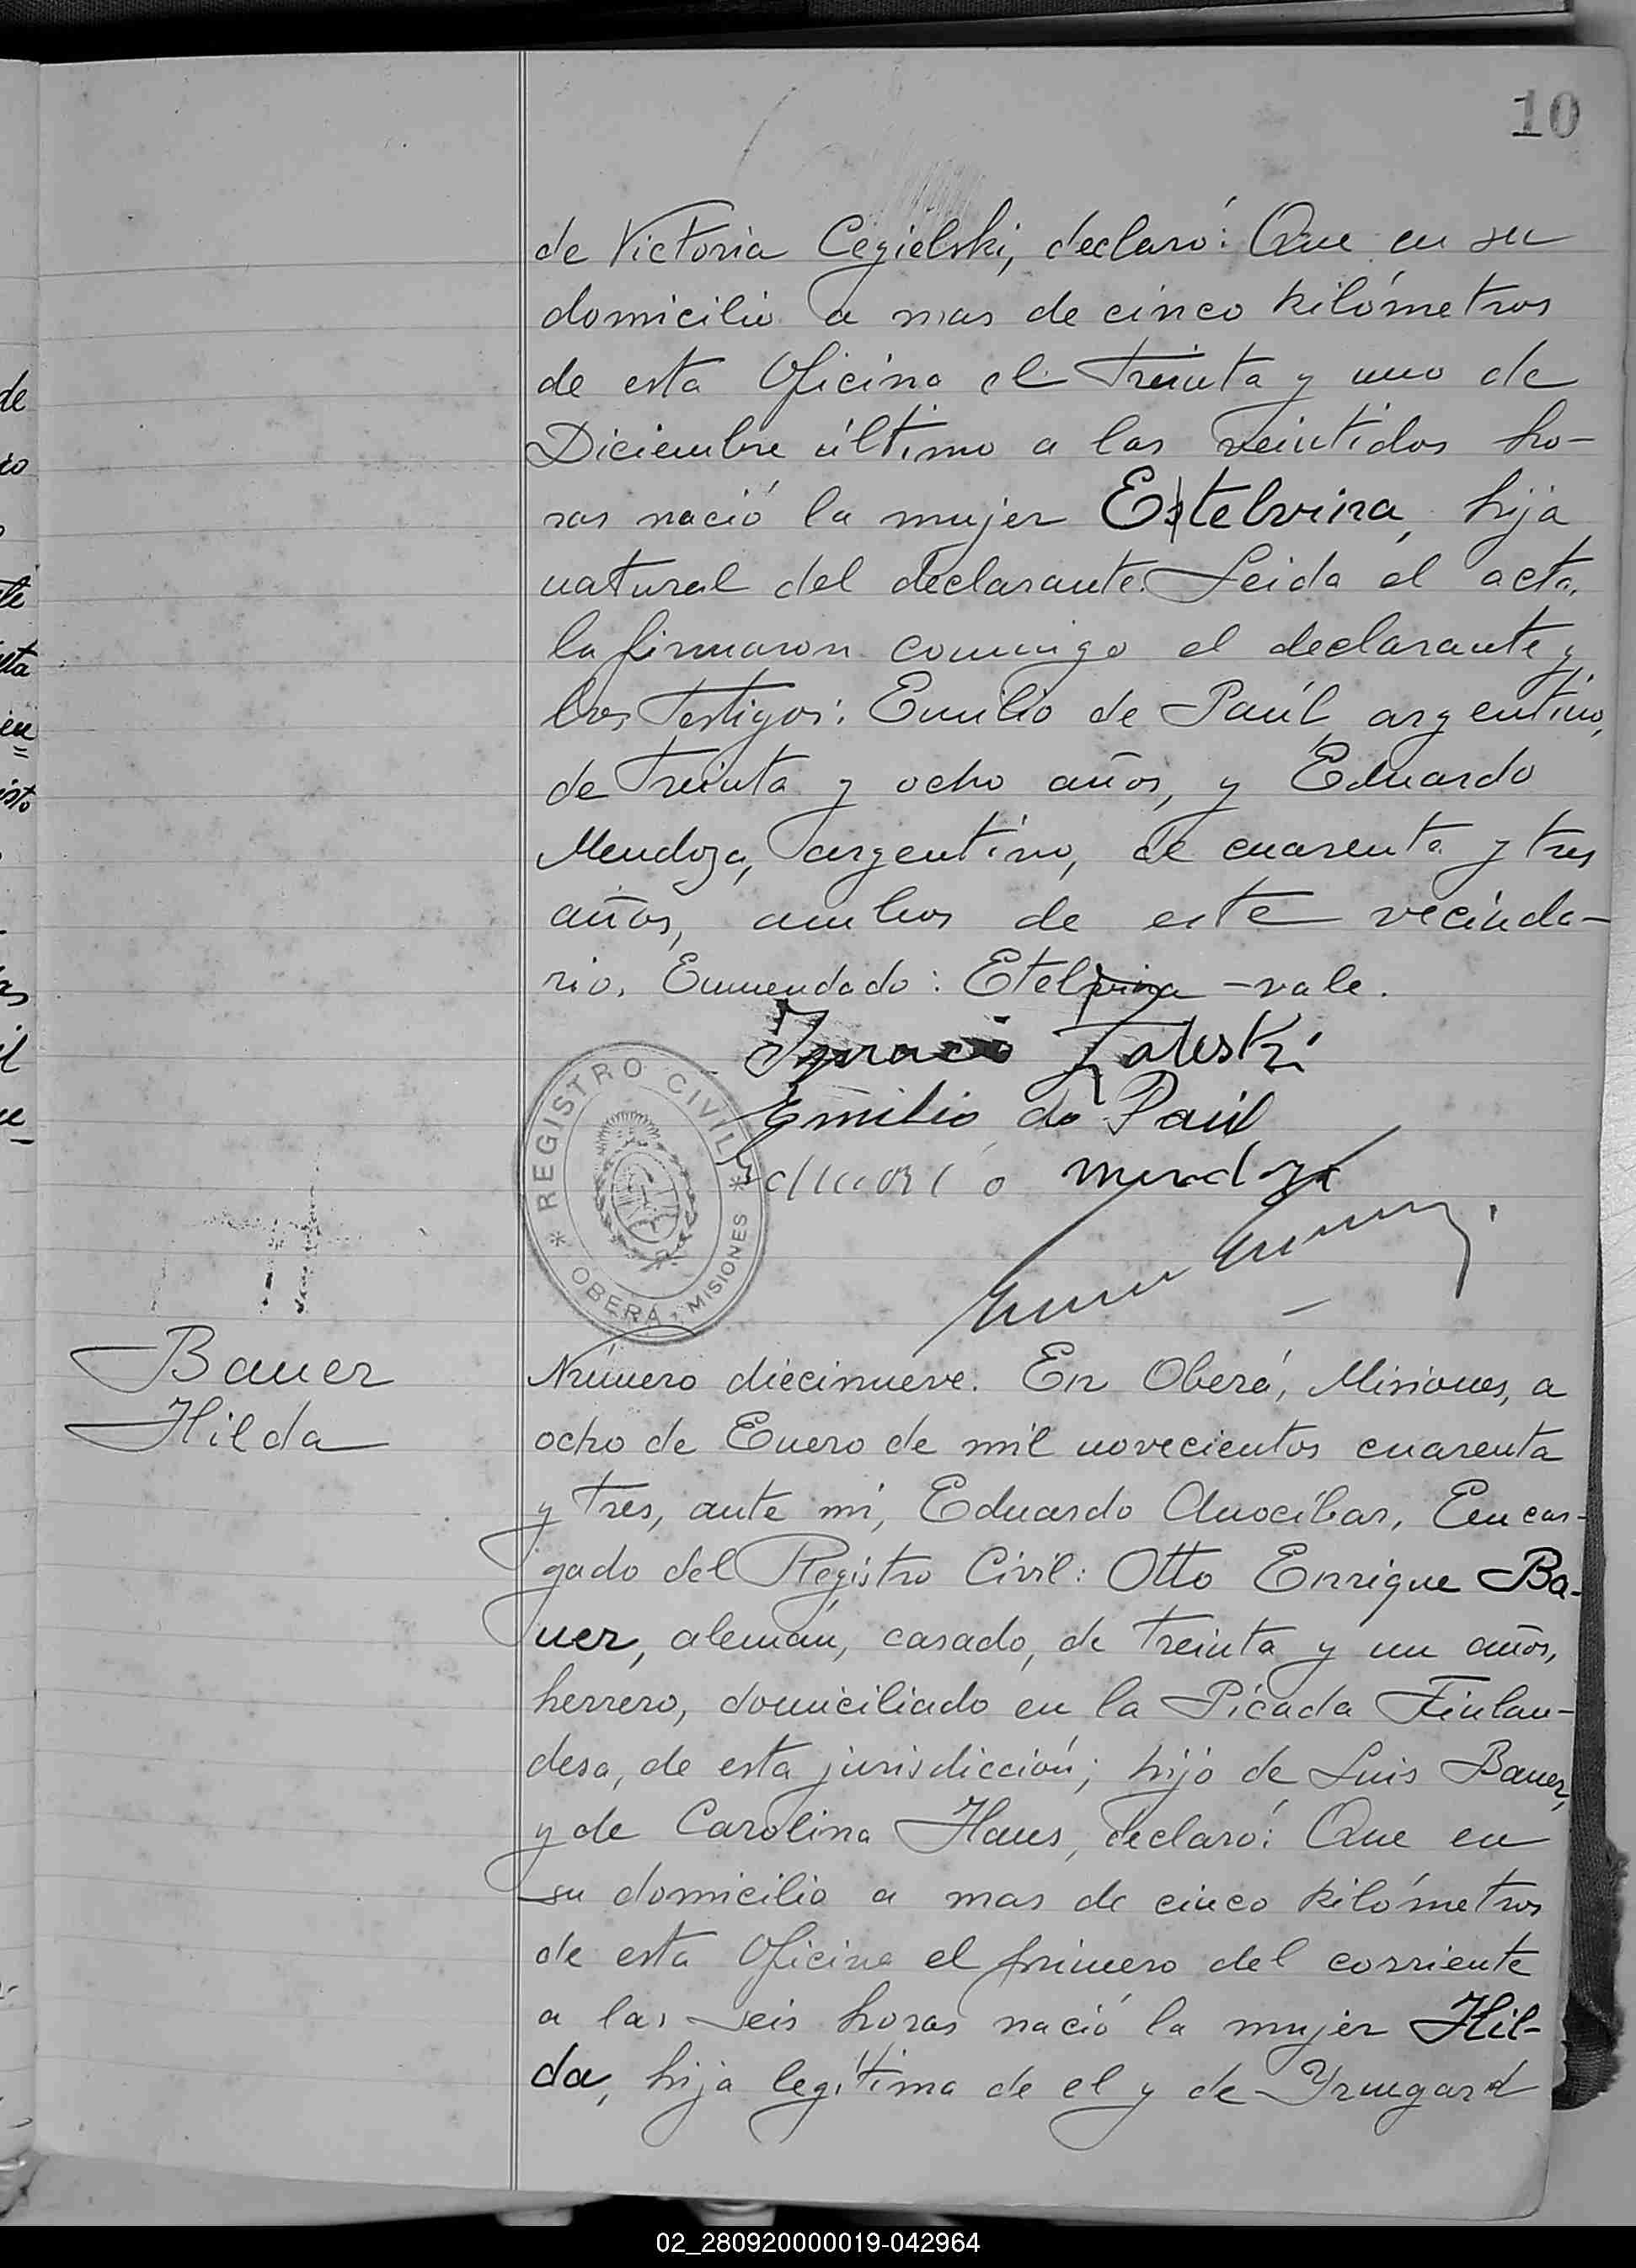 10
de Victoria Cegielski, declaró: Que en su
domicilio a mas de cinco kilómetros
de esta Oficina el treinta y uno de
Diciembre último a las veintidos ho-
ras nació la mujer Estelvina, hija
natural del declarante. Leida el acta,
la firmaron conmigo el declarante y
los testigos: Emilio de Paúl, argentino,
de treinta y ocho años, y Eduardo
Mendoza, argentino, de cuarenta y tres
años, ambos de este vecinda-
rio. Enmendado: Etelvina - vale.
Ignacio Zaleski
Emilio de Paúl
Eduardo Mendoza
* REGISTRO CIVIL *
OBERÁ, MISIONES
Bauer
Hilda
Número diecinueve. En Oberá, Misiones, a
ocho de Enero de mil novecientos cuarenta
y tres, ante mi, Eduardo Anocíbar, Encar-
gado del Registro Civil: Otto Enrique Ba-
uer, alemán, casado, de treinta y un años,
herrero, domiciliado en la Picada Finlan-
desa, de esta jurisdicción; hijo de Luis Bauer,
y de Carolina Haus, declaró: Que en
su domicilio a mas de cinco kilómetros
de esta Oficina el primero del corriente
a las seis horas nació la mujer Hil-
da, hija legítima de el y de Yrmgard
02_280920000019-042964